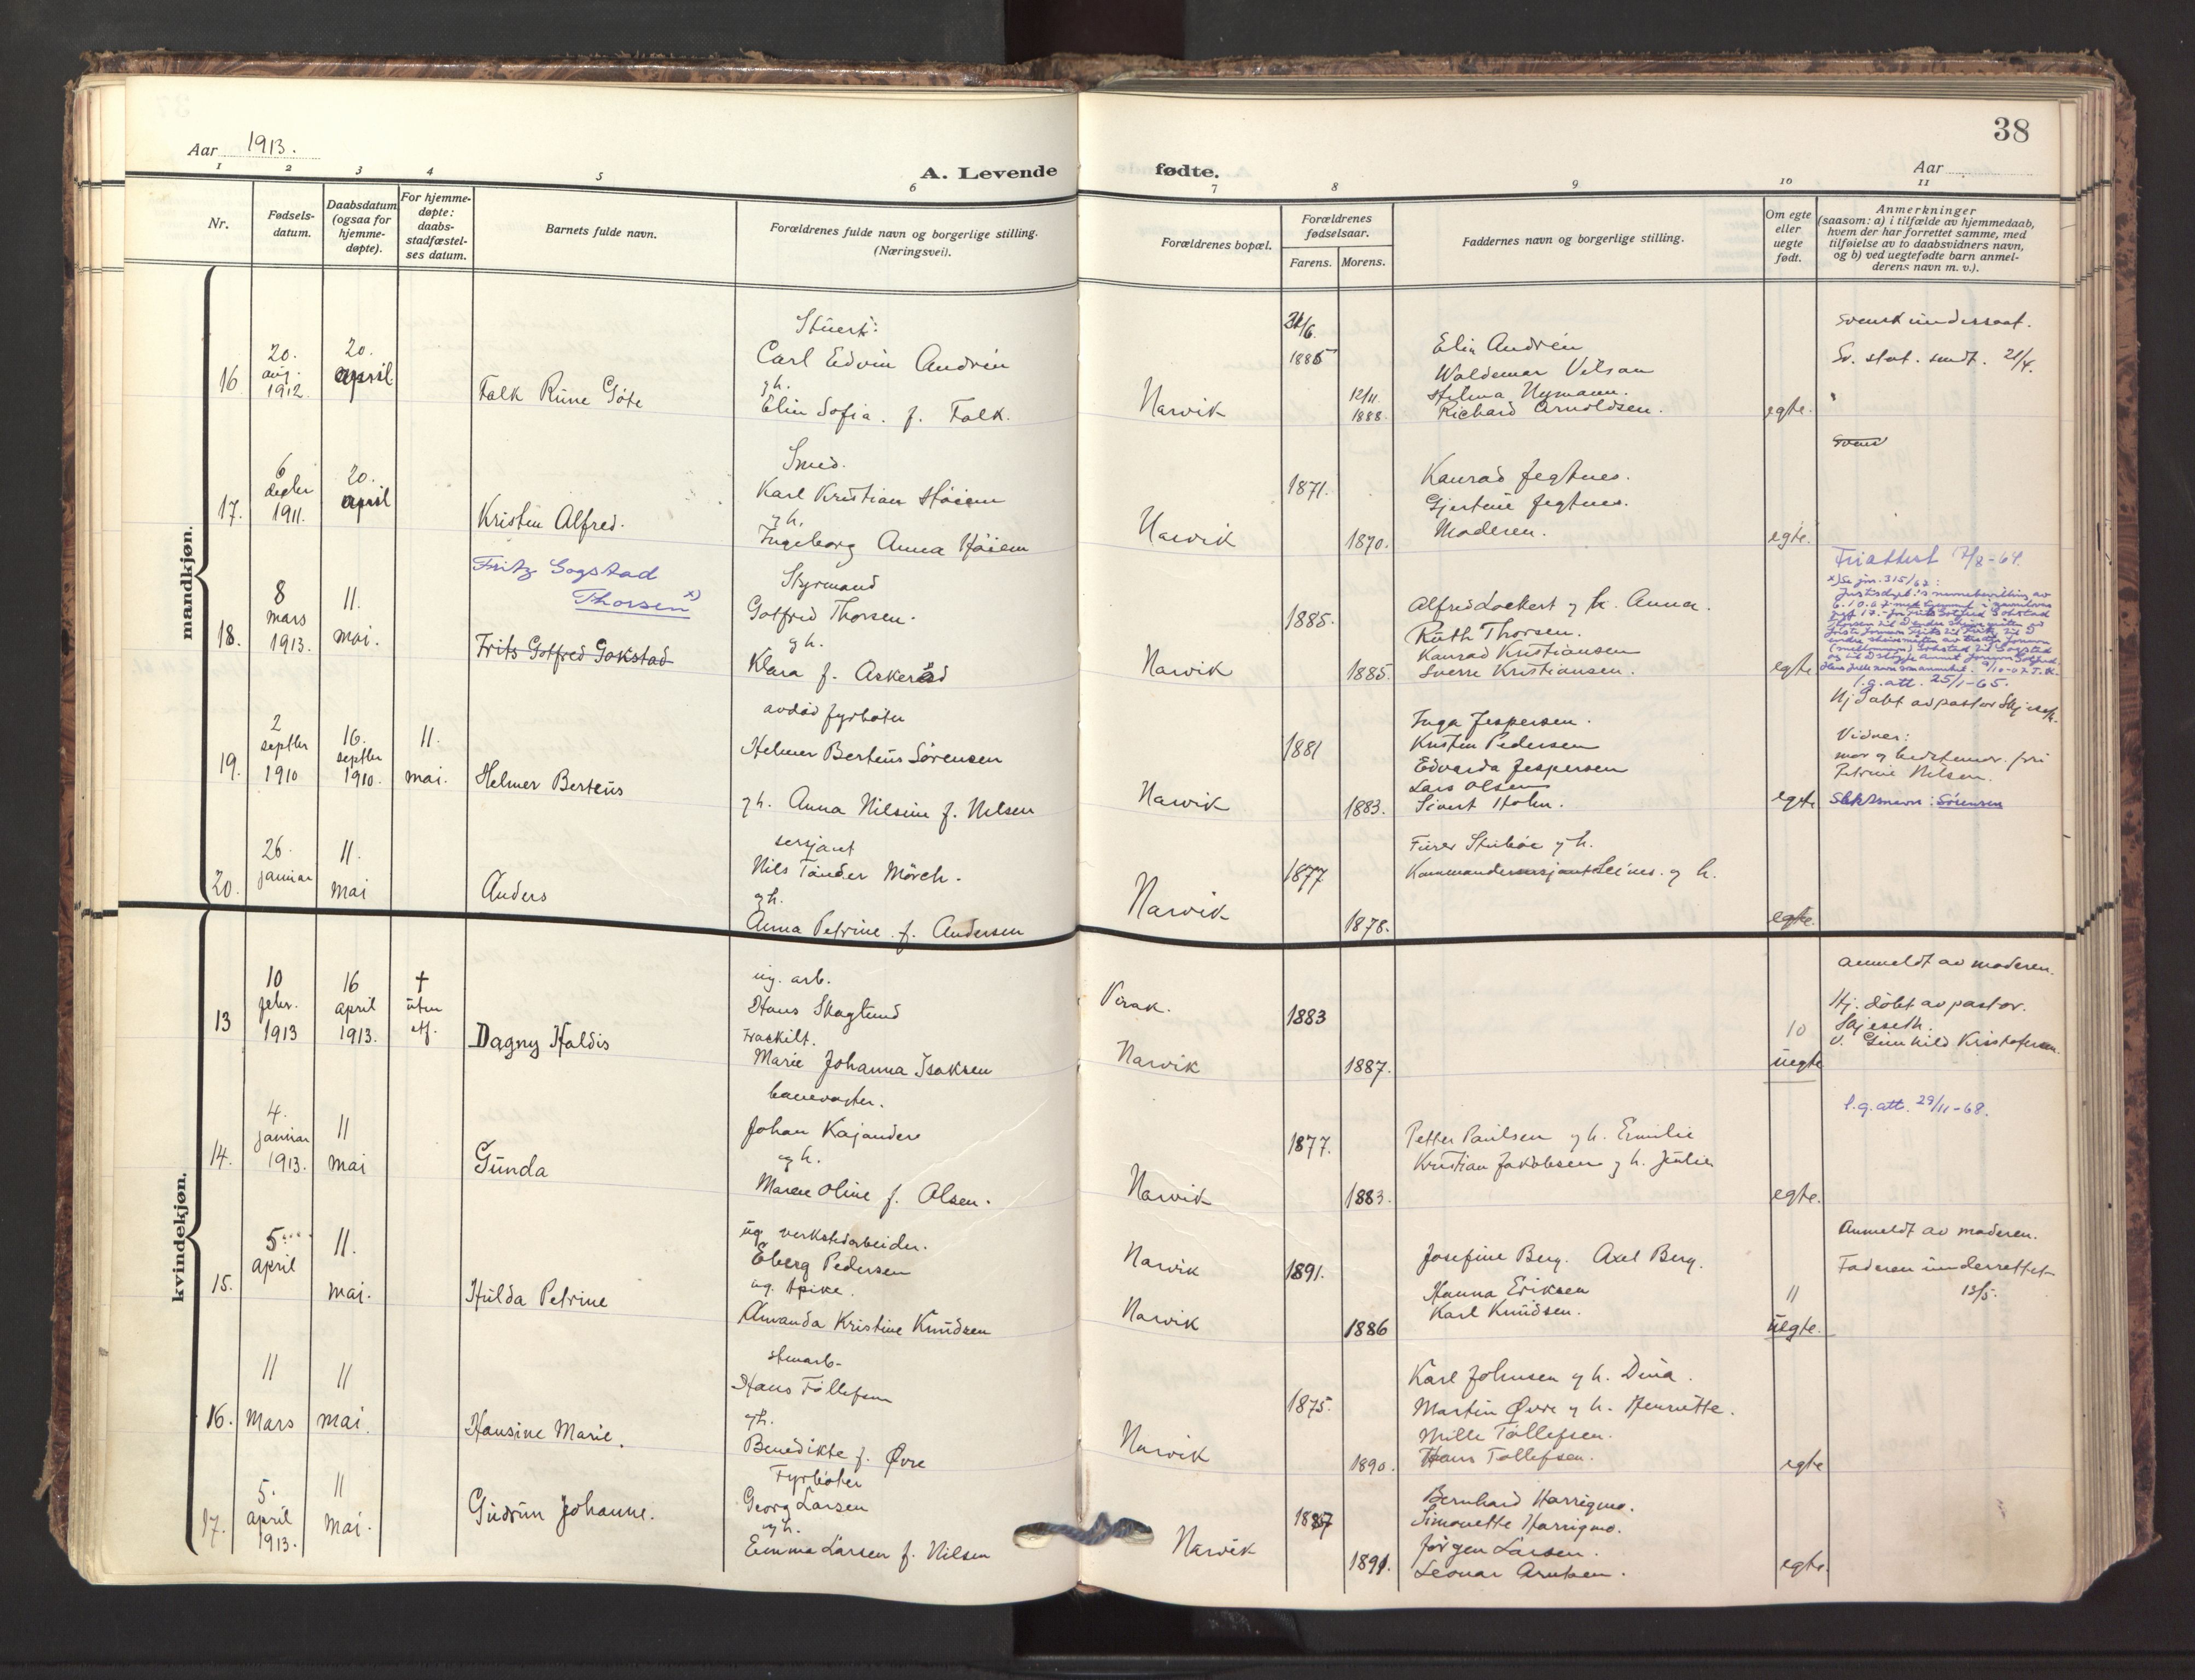 38
Aar 1913.
A. Levende fødte.
Aar
1 2 3 4 5 6 7 8 9 10 11
Nr.
Fødsels-
datum.
Daabsdatum
(ogsaa for
hjemme-
døpte).
For hjemme-
døpte:
daabs-
stadfæstel-
ses datum.
Barnets fulde navn.
Forældrenes fulde navn og borgerlige stilling.
(Næringsvei).
Forældrenes bopæl.
Forældrenes
fødselsaar.
Farens. Morens.
Faddernes navn og borgerlige stilling.
Om egte
eller
uegte
født.
Anmerkninger
(saasom: a) i tilfælde av hjemmedaab,
hvem der har forrettet samme, med
tilføielse av to daabsvidners navn,
og b) ved uegtefødte barn anmel-
derens navn m. v.).
mandkjøn.
16
20.
aug.
1912.
20.
april
Falk Rune Göte
Stuert:
Carl Edvin Andrén
g h.
Elin Sofia. f. Falk.
Narvik
1885
12/11
1888.
Elin Andrén
Waldemar Vilson
Helma Nymann.
Richard Arnoldsen.
egte.
svensk undersaat.
Sv. stat. sendt. 21/4.
17.
6
degbr
1911.
20.
april
Kristen Alfred.
Smed.
Karl Kristian Høiem
g h.
Ingeborg Anna Høiem
Narvik
1871.
1870.
Konrad Jegtnes.
Gjertine Jegtnes.
Moderen.
egte.
18.
8
mars
1913.
11.
mai.
Fritz Gogstad
Thorsen x)
Frits Gotfred Gokstad
Styrmand
Gotfred Thorsen.
g h.
Klara f. Askerød
Narvik
1885.
1885.
Alfred Lockert g h. Anna.
Ruth Thorsen.
Konrad Kristiansen
Sverre Kristiansen.
egte
Friattest 7/8-64.
x) Se jnr. 315/62:
l.g.att. 25/1-65.
19.
2
septbr
1910
16.
septbr
1910.
11.
mai.
Helmer Berteus
avdød fyrbøter
Helmer Berteus Sørensen
g h. Anna Nilsine f. Nilsen
Narvik
1881
1883.
Inga Jespersen.
Kristen Pedersen
Edvarda Jespersen
Lars Olsen
Sivert Holm.
egte
Hj. døbt av pastor Skjeseth.
Vidner:
mor g bedstemor. fru
Petrine Nilsen.
Slektsnavn: Sørensen
20.
26.
januar
11.
mai
Anders
sersjant
Nils Tønder Mørch.
g h.
Anna Petrine f. Andersen
Narvik
1877
1878.
g h.
g h.
egte.
kvindekjøn.
13
10
febr.
1913
16
april
1913.
†
uten
stf.
Dagny Haldis
ug. arb.
Hans Skoglund
fraskilt.
Marie Johanna Isaksen
Narvik
1883
1887.
10
uegte
anmeldt av moderen.
Hj. døbt av pastor.
Skjeseth.
v. Gunhild Kristofersen.
14.
4.
januar
1913.
11
mai
Gunda
banevogter.
Johan Kajander
g h.
Maren Oline f. Olsen.
Narvik
1877.
1883.
Petter Paulsen g h. Emilie
Kristian Jakobsen g h. Julie
egte.
l.g.att. 29/11-68.
15.
5
april
11.
mai.
Hulda Petrine
ug. verkstedarbeider.
Eberg Pedersen
ug. pike.
Amanda Kristine Knudsen
Narvik
Narvik
1891.
1886
Josefine Berg. Axel Berg.
Hanna Eriksen
Karl Knudsen.
11
uegte.
Anmeldt av moderen.
Faderen underrettet
13/5.
16.
11
mars
11
mai.
Hansine Marie.
stenarb.
Hans Tollefsen
g h.
Benedikte f. Øvre
Narvik
1875.
1890.
Karl Johnsen g h. Dina.
Martin Øvre g h. Henriette.
Mille Tollefsen.
Hans Tollefsen.
egte
17.
5.
april
1913.
11
mai.
Gudrun Johanne.
Fyrbøter
Georg Larsen
g h.
Emma Larsen f. Nilsen
Narvik
1887
1891.
Bernhard Harrigmo.
Simonette Harrigmo.
Jørgen Larsen.
Leonar Arntsen.
egte.